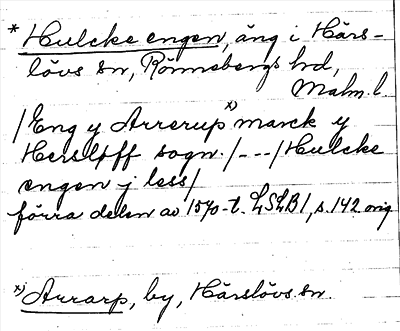 * Hulcke engen, äng i Härs-
lövs sn, Rönnebergs hd,
Malm. l.
/Eng y Arrerup x) marck y
Herslöff sogn. /---/ Hulcke
engen j less/
förra delen av 1570-t. LSLB 1, s. 142 orig
x) Arrarp, by, Härslövs sn.